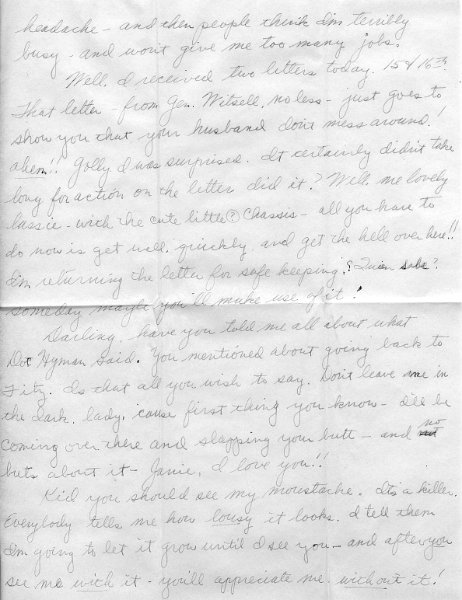 headache - and then people think I'm terribly
busy - and won't give me too many jobs.
Well, I received two letters today. 15 & 16th.
That letter - from Gen. Witsell, no less - just goes to
show you that your husband don't mess around!
ahem!! Golly I was surprised. It certainly didn't take
long for action on the letter did it? Well, me lovely
lassie - with the cute little (?) chassis - all you have to
do now is get well, quickly, and get the hell over here!!
I'm returning the letter for safe keeping, & Quien sabe?
someday maybe you'll make use of it!
Darling, have you told me all about what
Doc Hyman said. You mentioned about going back to
Fitz. Is that all you wish to say. Don't leave me in
the dark, lady, 'cause first thing you know - I'll be
coming over there and slapping your butt - and no
buts about it - Janie, I love you!!
Kid you should see my moustache. Its a killer.
Everybody tells me how lousy it looks. I tell them
I'm going to let it grow until I see you - and after you
see me with it - you'll appreciate me without it!